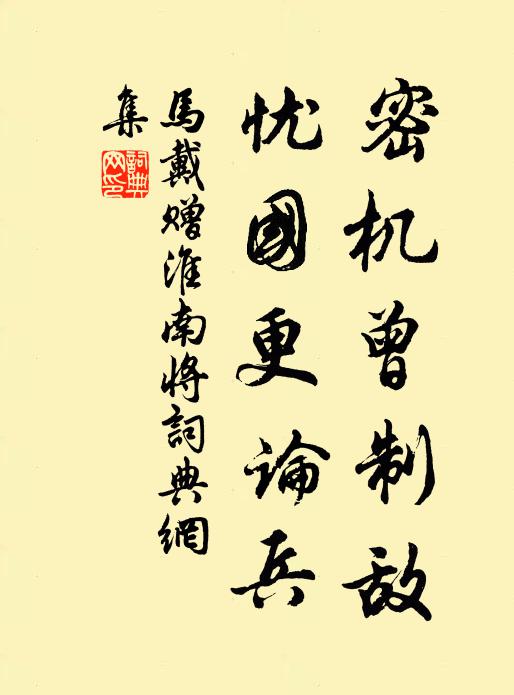 密机曾制敌
忧國更论兵
馬戴赠淮南将詞典網
集
詞典
网印